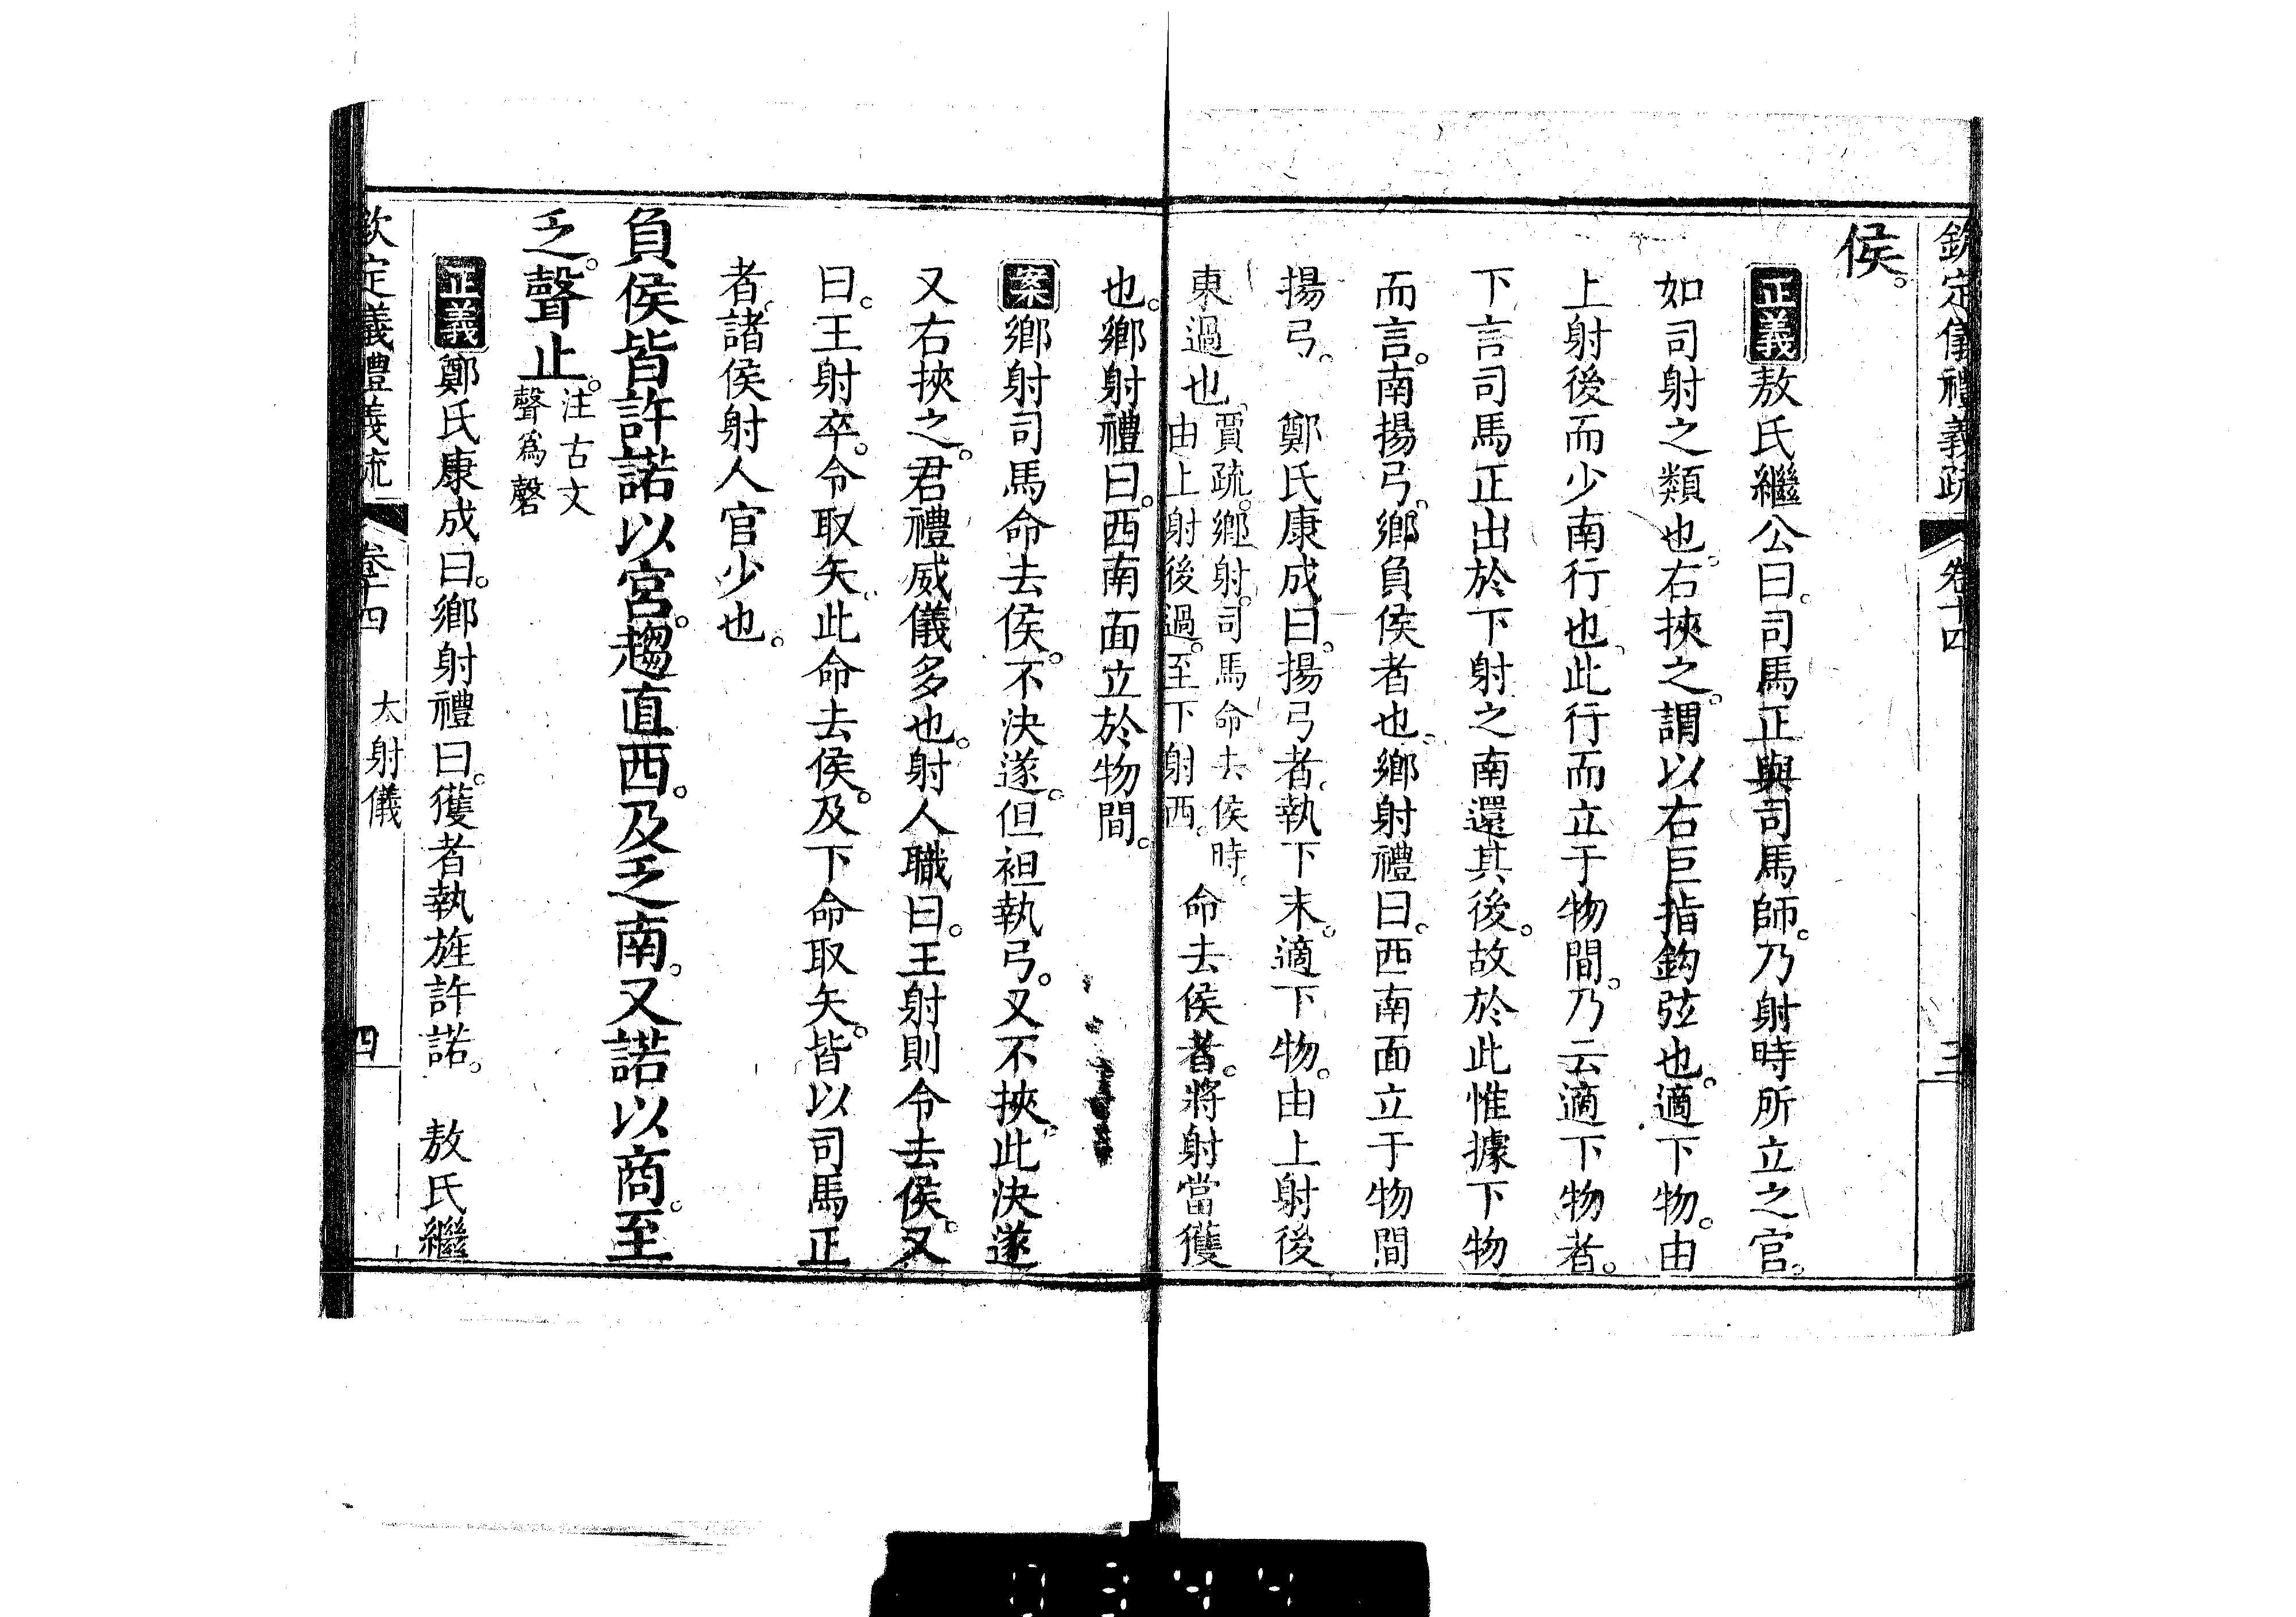 欽定儀禮義疏 卷十四 三
侯。
正義敖氏繼公曰。司馬正與司馬師。乃射時所立之官。
如司射之類也。右挾之。謂以右巨指鈎弦也。適下物。由
上射後而少南行也。此行而立于物間。乃云適下物者。
下言司馬正出於下射之南還其後。故於此惟據下物
而言。南揚弓。鄉負侯者也。鄉射禮曰。西南面立于物間
揚弓。 鄭氏康成曰。揚弓者。執下末。適下物。由上射後
東過也。賈疏。鄉射。司馬命去侯時。由上射後過。至下射西。命去侯者。將射當獲
也。鄉射禮曰。西南面立於物間。
案鄉射司馬命去侯。不決遂。但袒執弓。又不挾。此決遂
又右挾之。君禮威儀多也。射人職曰。王射則令去侯。又
曰。王射卒。令取矢。此命去侯。及下命取矢。皆以司馬正
者。諸侯射人官少也。
負侯皆許諾以宮。趨直西。及乏南。又諾以商。至
乏。聲止。注古文聲為磬
正義鄭氏康成曰。鄉射禮曰。獲者執旌許諾。 敖氏繼
欽定儀禮義疏 卷十四 大射儀 四
0344